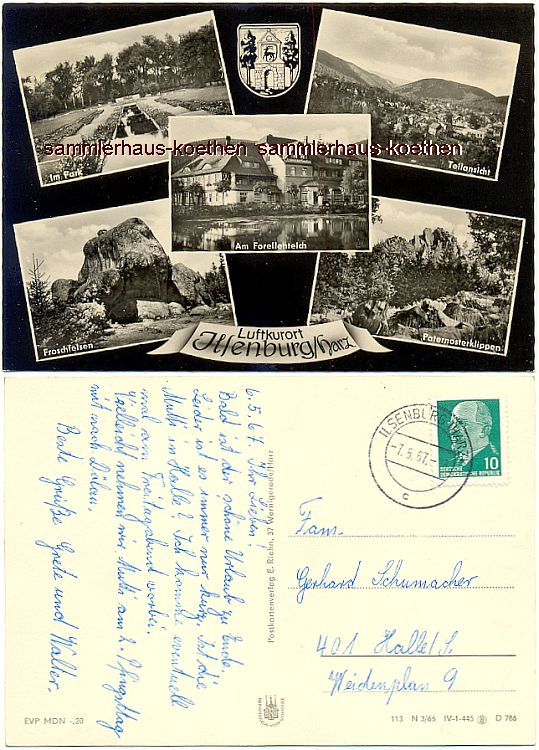 sammlerhaus-koethen sammlerhaus-koethen
Im Park
Teilansicht
Am Forellenteich
Froschfelsen
Paternosterklippen
Luftkurort
Ilsenburg/Harz
6.5.67. Ihr Lieben!
Bald ist der schöne Urlaub zu Ende.
Leider ist es immer nur kurz. Ist die
Mutti in Halle? Ich komme eventuell
mal am Freitagabend vorbei.
Vielleicht nehmen wir Mutti am 2. Pfingsttag
mit nach Dölau.
Beste Grüße Grete und Walter.
Postkartenverlag E. Riehn, 37 Wernigerode/Harz
ILSENBURG (HARZ)
-7.5.67.-
c
DEUTSCHE
DEMOKRATISCHE REPUBLIK
10
Fam.
Gerhard Schumacher
401 Halle/S.
Weidenplan 9
EVP MDN -,20
113 N 3/65 IV-1-445 D 786